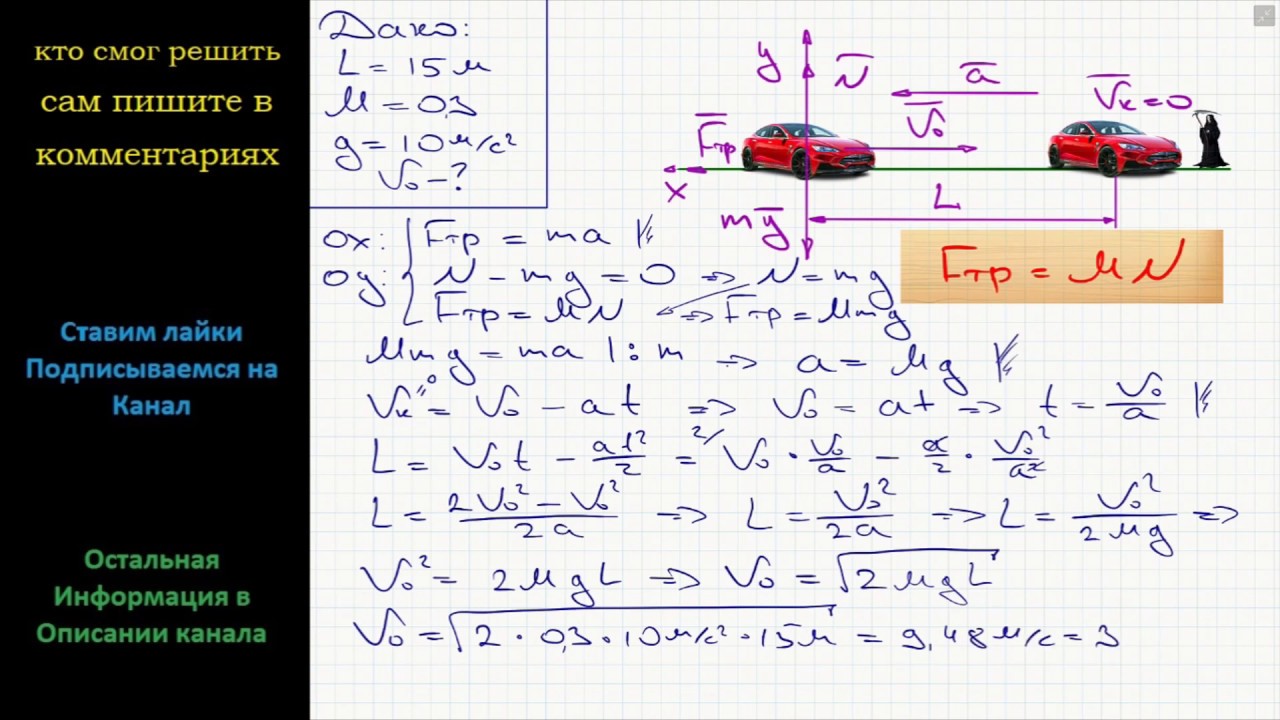 кто смог решить
сам пишите в
комментариях
Ставим лайки
Подписываемся на
Канал
Остальная
Информация в
Описании канала
Дано:
L = 15 м
μ = 0,3
g = 10 м/с²
V₀ – ?
y
N
a
V₀
Vк = 0
Fтр
x
mg
L
Fтр = μN
ox: Fтр = ma
oy: N – mg = 0 => N = mg
Fтр = μN => Fтр = μmg
μmg = ma |: m => a = μg
Vк = 0 = V₀ – at => V₀ = at => t = V₀/a
L = V₀t – at²/2 = V₀ · V₀/a – a/2 · V₀²/a²
L = (2V₀² – V₀²)/2a => L = V₀²/2a => L = V₀²/2μg =>
V₀² = 2μgL => V₀ = √2μgL
V₀ = √2 · 0,3 · 10 м/с² · 15 м = 9,48 м/с = 3